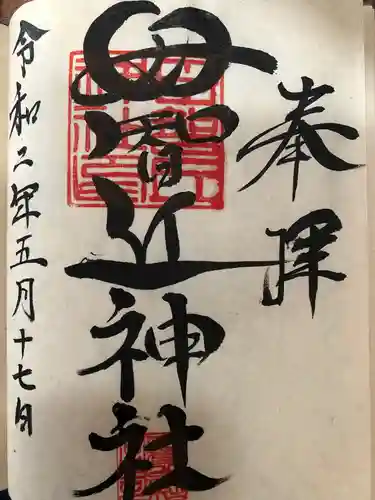 奉拝
母智丘神社
令和二年五月十七日